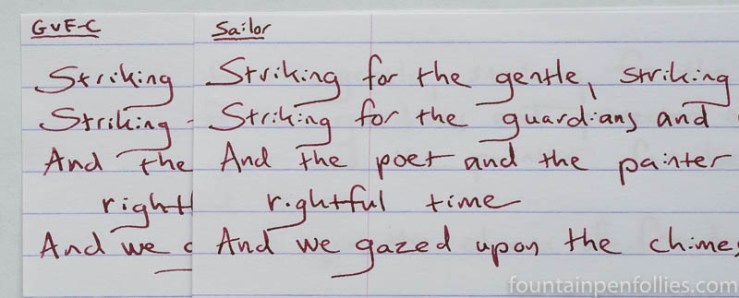 GvF-C
Striking
Striking
And the
right
And we
Sailor
Striking for the gentle, striking
Striking for the guardians and
And the poet and the painter
rightful time
And we gazed upon the chimes
fountainpenfollies.com